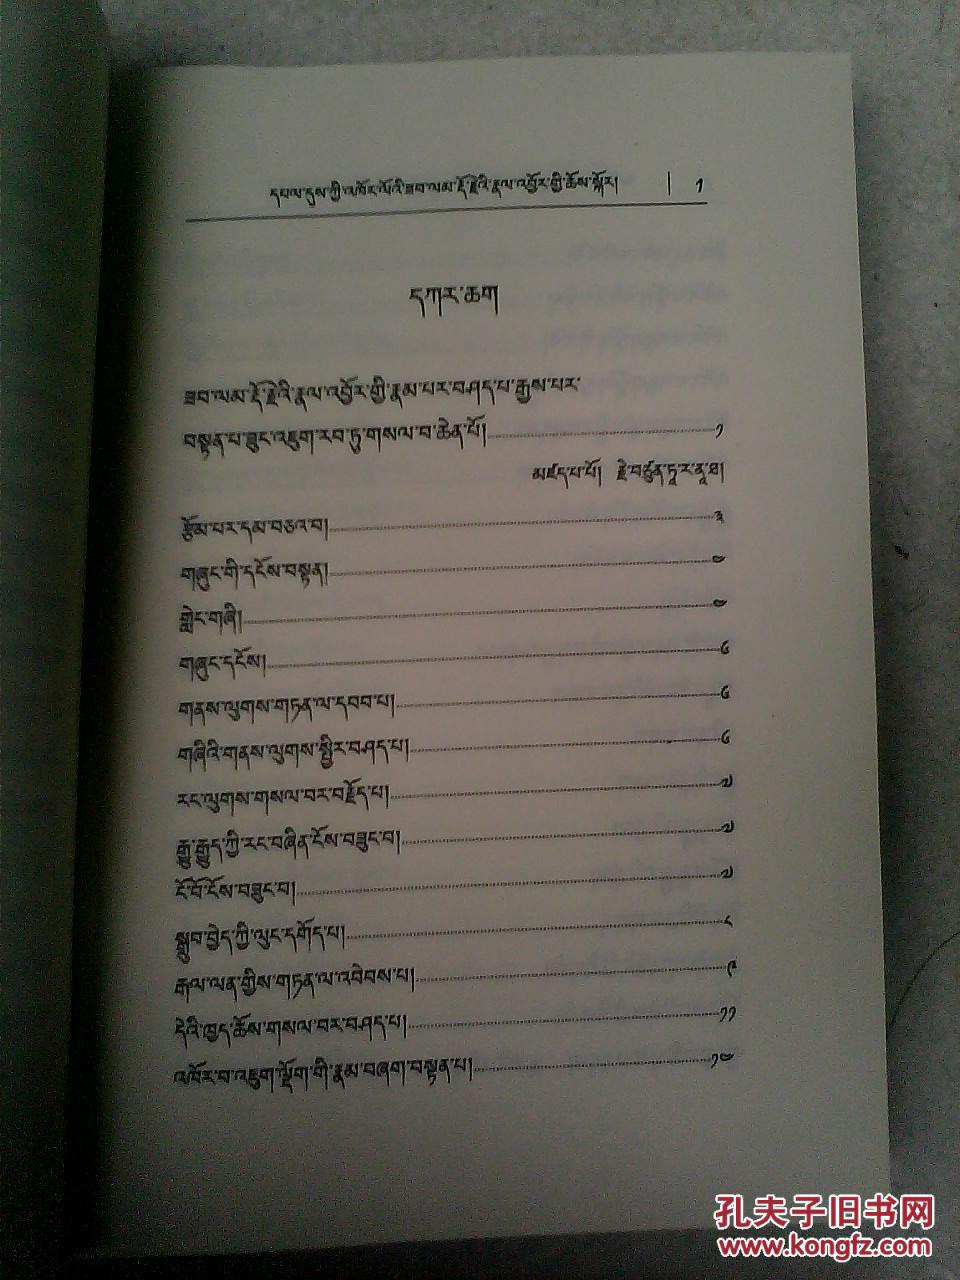 དཔལ་དུས་ཀྱི་འཁོར་ལོའི་ཟབ་ལམ་རྡོ་རྗེའི་རྣལ་འབྱོར་གྱི་ཆོས་སྐོར། | ༡
དཀར་ཆག
ཟབ་ལམ་རྡོ་རྗེའི་རྣལ་འབྱོར་གྱི་རྣམ་པར་བཤད་པ་རྒྱས་པར་
བསྟན་པ་ཟུང་འཇུག་རབ་ཏུ་གསལ་བ་ཆེན་པོ། ༡
མཛད་པ་པོ། རྗེ་བཙུན་ཏཱ་ར་ནཱ་ཐ།
རྩོམ་པར་དམ་བཅའ་བ། ༣
གཞུང་གི་དངོས་བསྟན། ༤
གླེང་གཞི། ༤
གཞུང་དངོས། ༦
གནས་ལུགས་གཏན་ལ་དབབ་པ། ༦
གཞིའི་གནས་ལུགས་སྤྱིར་བཤད་པ། ༦
རང་ལུགས་གསལ་བར་བརྗོད་པ། ༧
རྒྱུ་རྒྱུད་ཀྱི་རང་བཞིན་ངོས་བཟུང་བ། ༧
ངོ་བོ་ངོས་བཟུང་བ། ༧
སྒྲུབ་བྱེད་ཀྱི་ལུང་དགོད་པ། ༨
རྒལ་ལན་གྱིས་གཏན་ལ་འབེབས་པ། ༩
དེའི་ཁྱད་ཆོས་གསལ་བར་བཤད་པ། ༡༡
འཁོར་བ་འཇུག་ལྡོག་གི་རྣམ་བཞག་བསྟན་པ། ༡༤
孔夫子旧书网
www.kongfz.com